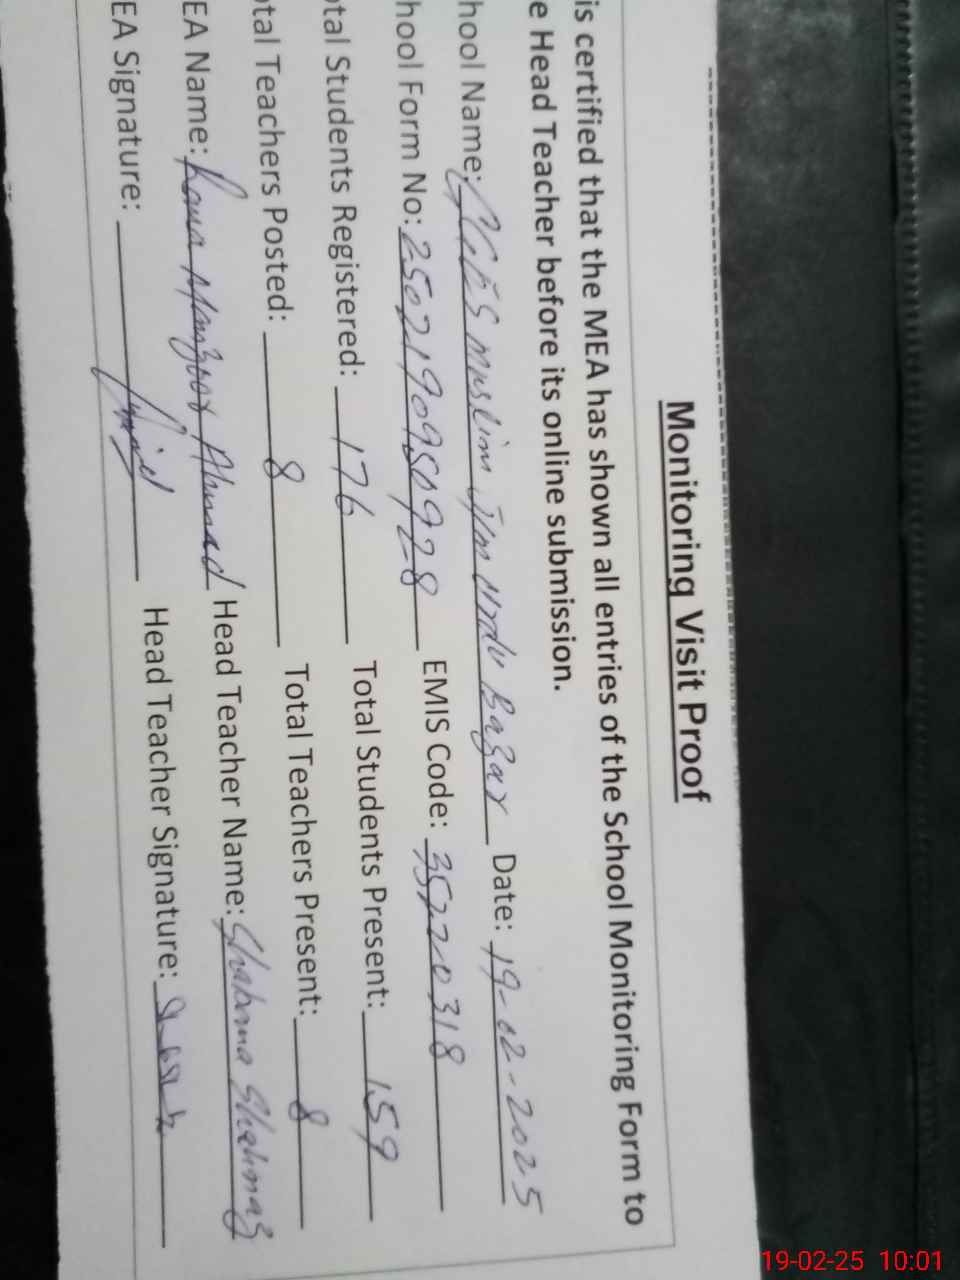 Monitoring Visit Proof
is certified that the MEA has shown all entries of the School Monitoring Form to
e Head Teacher before its online submission.
hool Name: muslim Urdu Bazar Date: 19-02-2025
hool Form No: EMIS Code: 35220318
otal Students Registered: 176 Total Students Present: 159
otal Teachers Posted: 8 Total Teachers Present: 8
EA Name: Rana Manzoor Ahmad Head Teacher Name: Shabana Shahnaz
EA Signature: Head Teacher Signature:
19-02-25 10:01